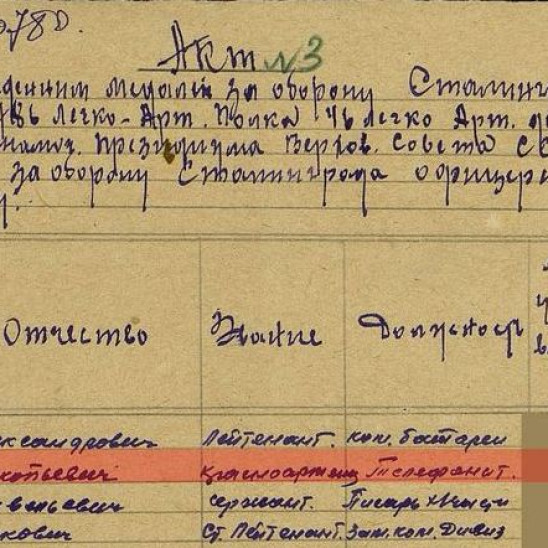 78д.
Акт №3
дении медалей за оборону Сталинг
легко-Арт. Полка 4ь легко Арт.
Президиума Верхов. Совета С
за оборону Сталинграда офицер
Отчество Звание Должность
ксандрович Лейтенант. ком. батареи
копьевич Красноармеец Телефонист.
вельевич сержант. Писарь
кович Ст. Лейтенант. Зам. ком. Дивиз